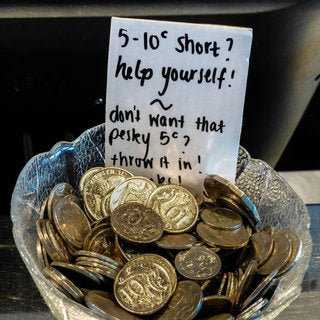 5-10c short?
help yourself!
~
don't want that
pesky 5c?
throw it in!
10
10